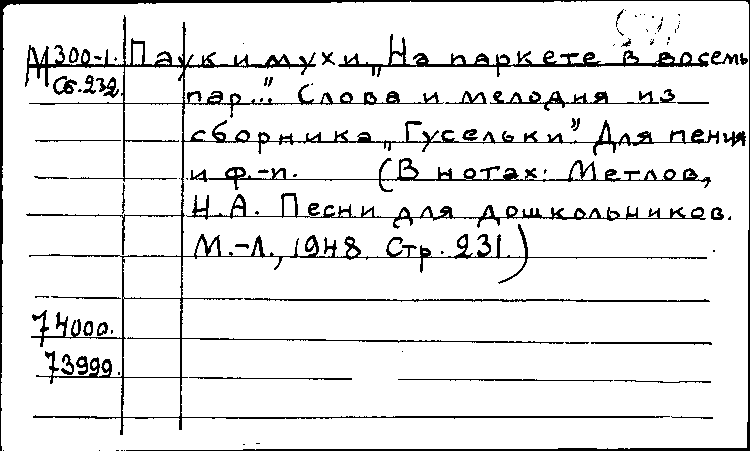 М 300-1. Паук и мухи. „На паркете в восемь
Сб. 232. пар..." Слова и мелодия из
сборника „Гусельки". Для пения
и ф.-п. (В нотах: Метлов,
Н.А. Песни для дошкольников.
М.-Л., 1948. Стр. 231.)
74000.
73999.